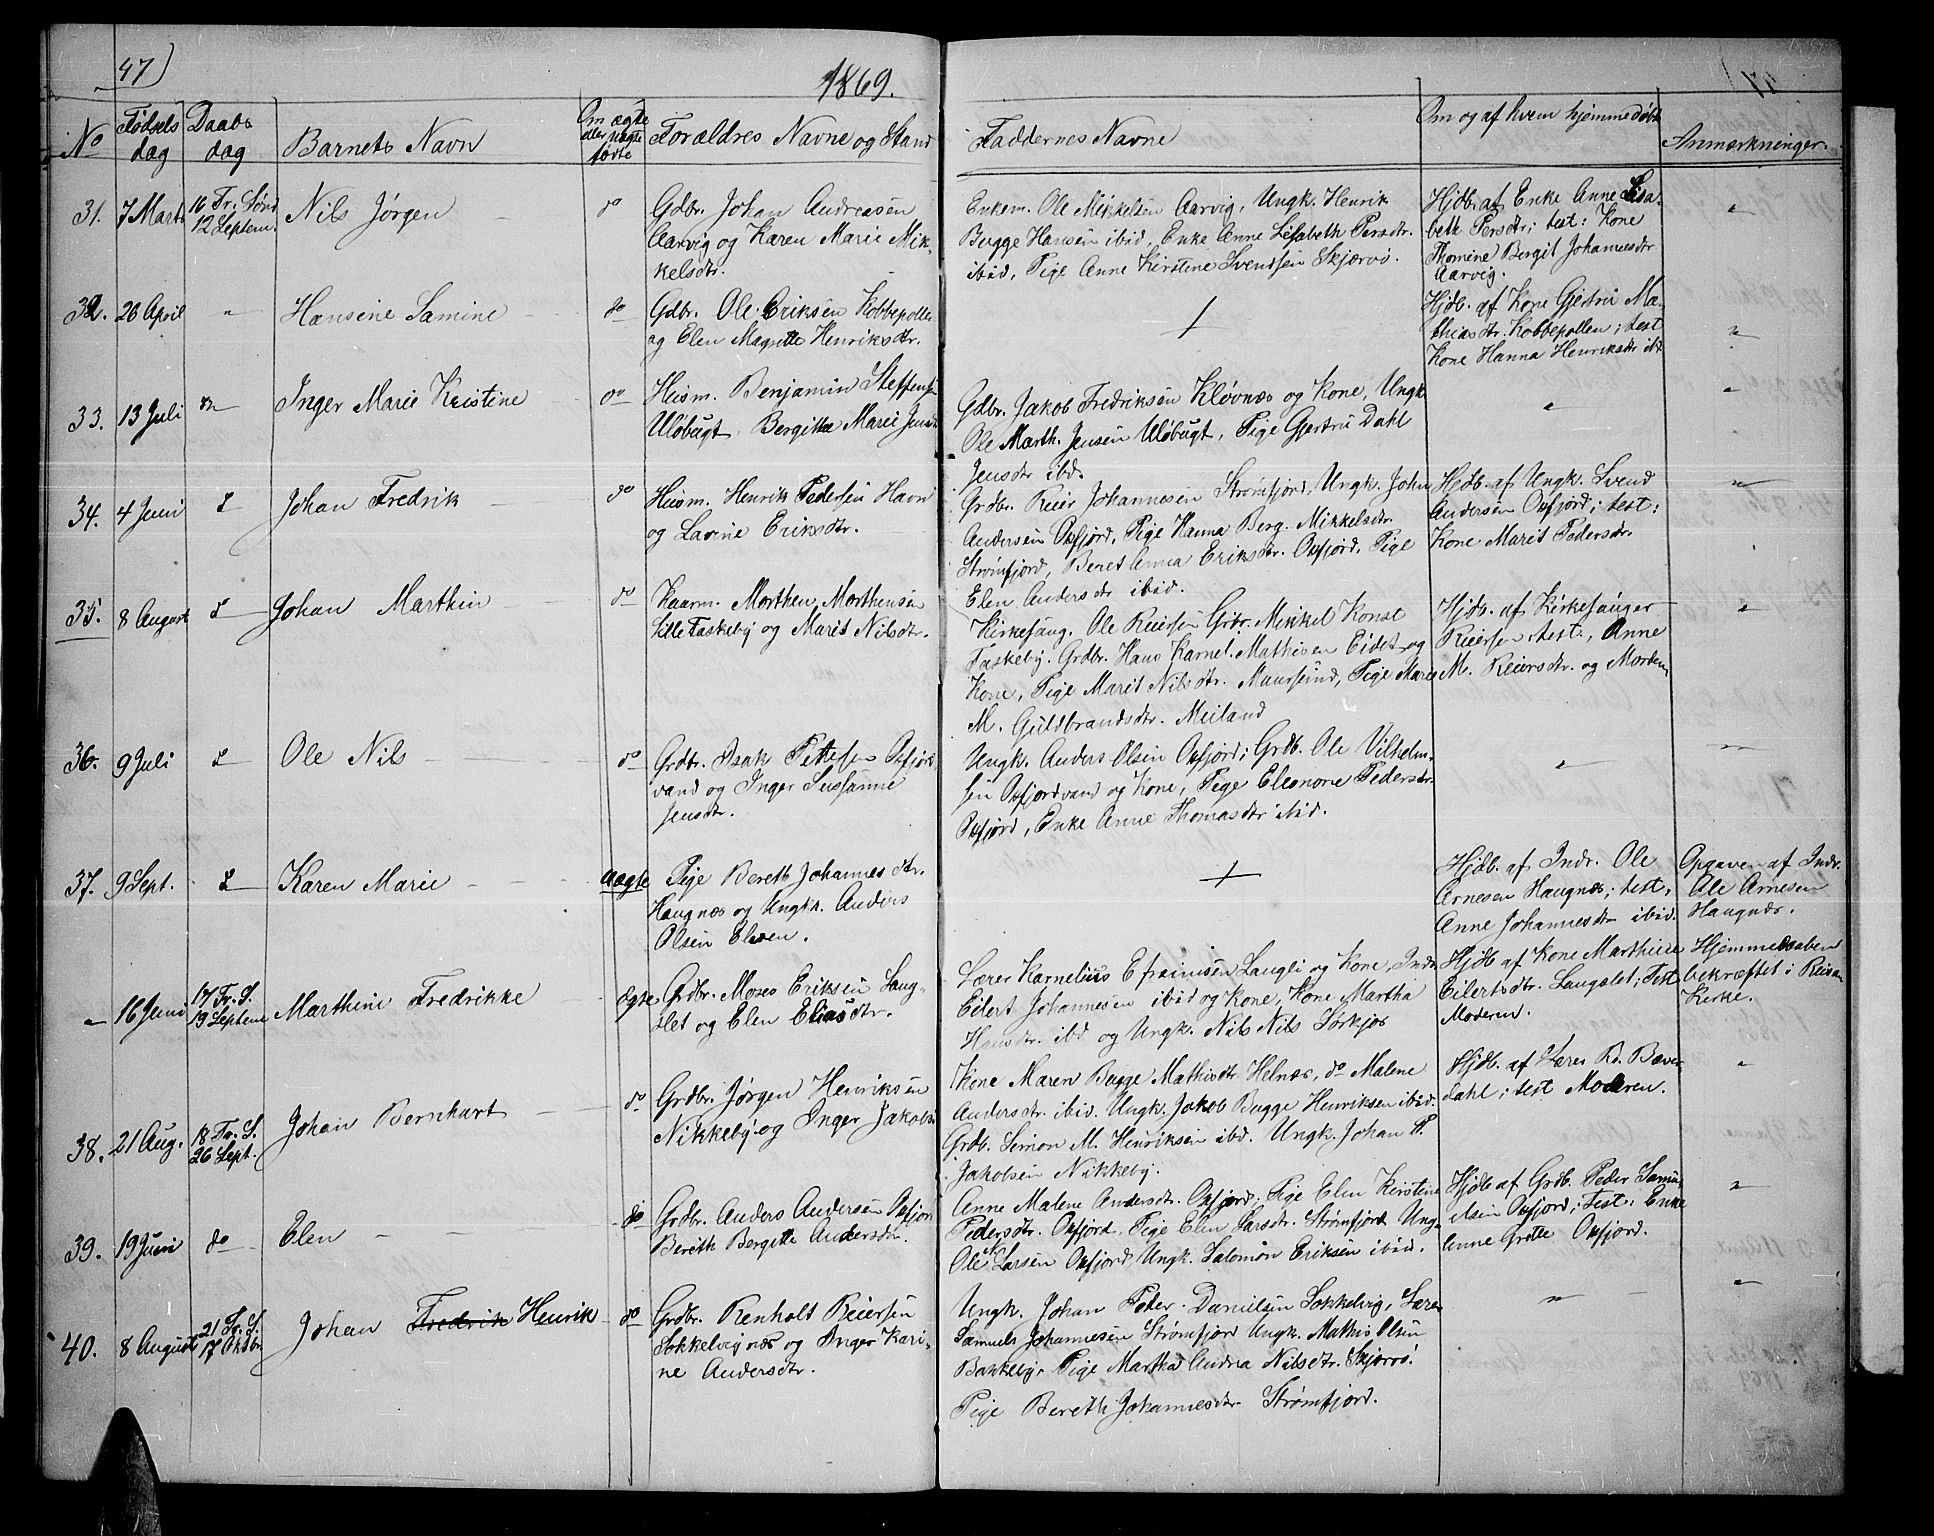 47)
1869.
No
Fødsels dag
Daabs dag
Barnets Navn
Om ægte eller uægte fødte
Forældres Navne og Stand
Faddernes Navne
Om og af hvem hjemmedøbt
Anmærkninger.
31. 7 Marts 16 Fr. Sønd. 12 Septem. Nils Jørgen do
Gdbr. Johan Andreasen
Aarvig og Karen Marie Mik-
kelsdtr.
Enkem. Ole Mikkelsen Aarvig, Ungk. Henrik
Bugge Hansen ibid, Enke Anne Lisabeth Persdtr.
ibid, Pige Anne Kirstine Svendsen Skjærvø.
Hjdb. af Enke Anne Lisa-
beth Persdtr; test: Kone
Thomine Bergit Johannesdtr
Aarvig.
"
32. 26 April " Hansine Samine do
Gdbr. Ole Eriksen Kobbepollen
og Elen Magrette Henriksdtr.
+
Hjdb. af Kone Gjertru Ma-
thiasdtr. Kobbepollen; test
Kone Hanna Henriksdtr ibd
"
33. 13 Juli do Inger Marie Kristine do
Husm. Benjamin Steffens
Uløbugt, Bergitte Marie Jensd
Gdbr. Jakob Fredriksen Kløvnæs og Kone, Ungk.
Ole Marth. Jensen Uløbugt, Pige Gjertru Dahl
Jensdtr ibd.
"
"
34. 4 Juni Johan Fredrik do
Husm. Henrik Pedersen Havn
og Lavine Eriksdtr.
Grdbr. Reier Johannesen Strømfjord, Ungk. John
Andersen Oxfjord, Pige Hanna Berg. Mikkelsdtr.
Strømfjord, Beret Anna Eriksdtr. Oxfjord, Pige
Elen Andersdtr ibid.
Hjdb. af Ungk. Svend
Andersen Oxfjord; test:
Kone Marit Pedersdtr.
"
35. 8 August Johan Marthin do
Kaarm. Morthen Morthensen
Lille Taskeby og Marit Nilsdtr.
Kirkesang. Ole Reiersen Grbr. Mikkel Konst
Taskeby. Grdbr. Hans Karnel. Mathisen Eidet og
Kone, Pige Marit Nilsdtr. Maursund, Pige Maren
M. Guldbrandsdtr. Meiland
Hjdb. af Kirkesanger
Reiersen test., Anne
M. Reiersdtr. og Moderen
"
36. 9 Juli Ole Nils do
Grdbr. Isak Pettersen Oxfjord-
vand og Inger Sussanne
Jensdtr.
Ungk. Anders Olsen Oxfjord; Grdb. Ole Vilhelm-
sen Oxfjordvand og Kone, Pige Eleonore Pedersdtr.
Oxfjord, Enke Anne Thomasdtr ibid.
"
"
37. 9 Sept. Karen Marie uægte
Pige Bereth Johannesdtr.
Haugnæs og Ungk. Anders
Olsen Elven.
+
Hjdb. af Indr. Ole
Arnesen Haugnæs; test.
Anne Johannesdtr ibid.
Opgaven af Indr.
Ole Arnesen
Haugnæs.
" 16 Juni 17 Fr. S. 19 Septem Marthine Fredrikke ægte
Grdbr. Moses Eriksen Laug-
slet og Elen Eliasdtr.
Lærer Karnelius Efraimsen Laugli og Kone, Indr.
Eilert Johannesen ibid og Kone, Kone Martha
Hansdtr. ibd og Ungk. Nils Nils Sørkjos
Hjdb af Kone Marthine
Eilertsdtr. Laugslet; Test
Moderen.
Hjemmedaaben
bekræftet i Reisa
Kirke.
38. 21 Aug. 18 Fr. S. 26 Sept. Johan Bernhart do
Grdbr. Jørgen Henriksen
Nikkeby og Inger Jakobs
Kone Maren Bugge Mathisdtr. Helnæs, do Malene
Andersdtr. ibid. Ungk. Jakob Bugge Henriksen ibid.
Grdb. Simon M. Henriksen ibd. Ungk. Johan P.
Jakobsen Nikkeby.
Hjdb. af Lærer Bæver-
dahl; test Moderen.
"
39. 19 Juni do Elen do
Grdbr. Anders Andersen Oxfjord
Bereth Bergitte Andersdtr.
Anne Malene Andersdtr. Oxfjord; Pige Elen Kirstine
Pedersdtr. Oxfjord. Pige Elen Larsdtr. Strømfjord Ung-
Ole Larsen Oxfjord, Ungk. Salomon Eriksen ibid.
Hjdb af Grdb. Peder Samu-
elsen Oxfjord; Test: Enke
Anne Grette Oxfjord.
"
40. 8 August 21 Fr. S. 17 Oktbr Johan Fredrik Henrik do
Grdbr. Renholt Reiersen
Sokkelvignæs og Inger Kari-
ne Andersdtr.
Ungk. Johan Peter Danielsen Sokkelvig, Lærer
Samuels Johannesen Strømfjord Ungk. Mathis Olsen
Bakkeby, Pige Martha Andrea Nilsdtr. Skjærvø.
Pige Bereth Johannesdtr. Strømfjord.
"
"